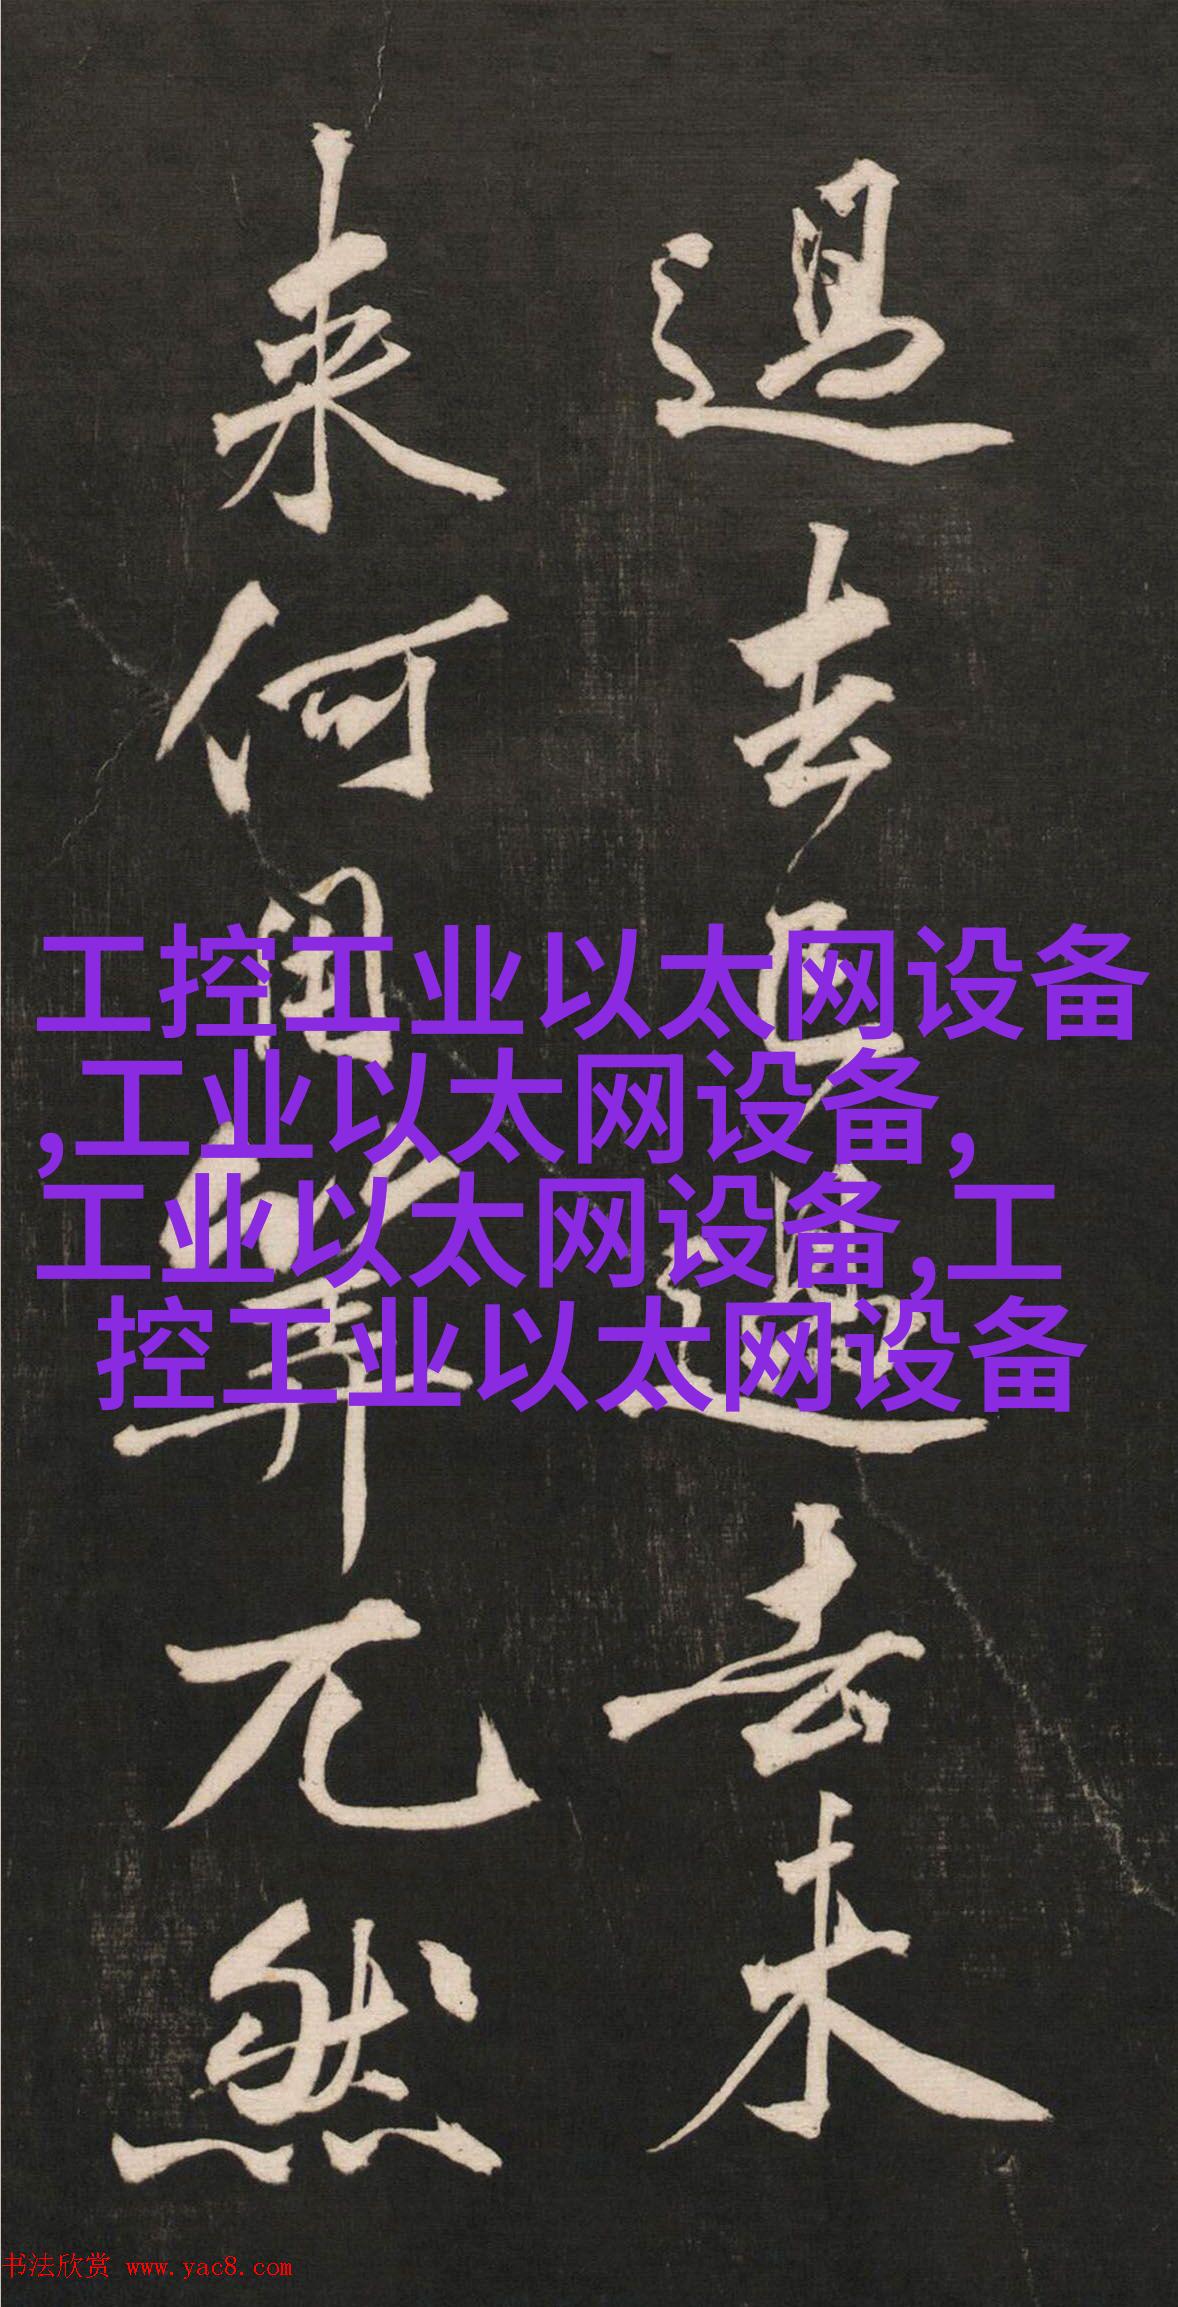 過去已過去未
来何用筭兀然
工控工业以太网设备
,工业以太网设备,
工业以太网设备,工
控工业以太网设备
书法欣赏 www.yac8.com